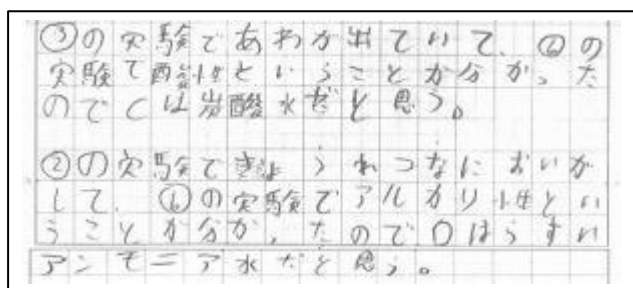 ③の実験であわが出ていて、⑥の
実験で酸性ということが分かった
のでCは炭酸水だと思う。
②の実験できょうれつなにおいが
して、⑥の実験でアルカリ性とい
うことが分かったので○はうすい
アンモニア水だと思う。